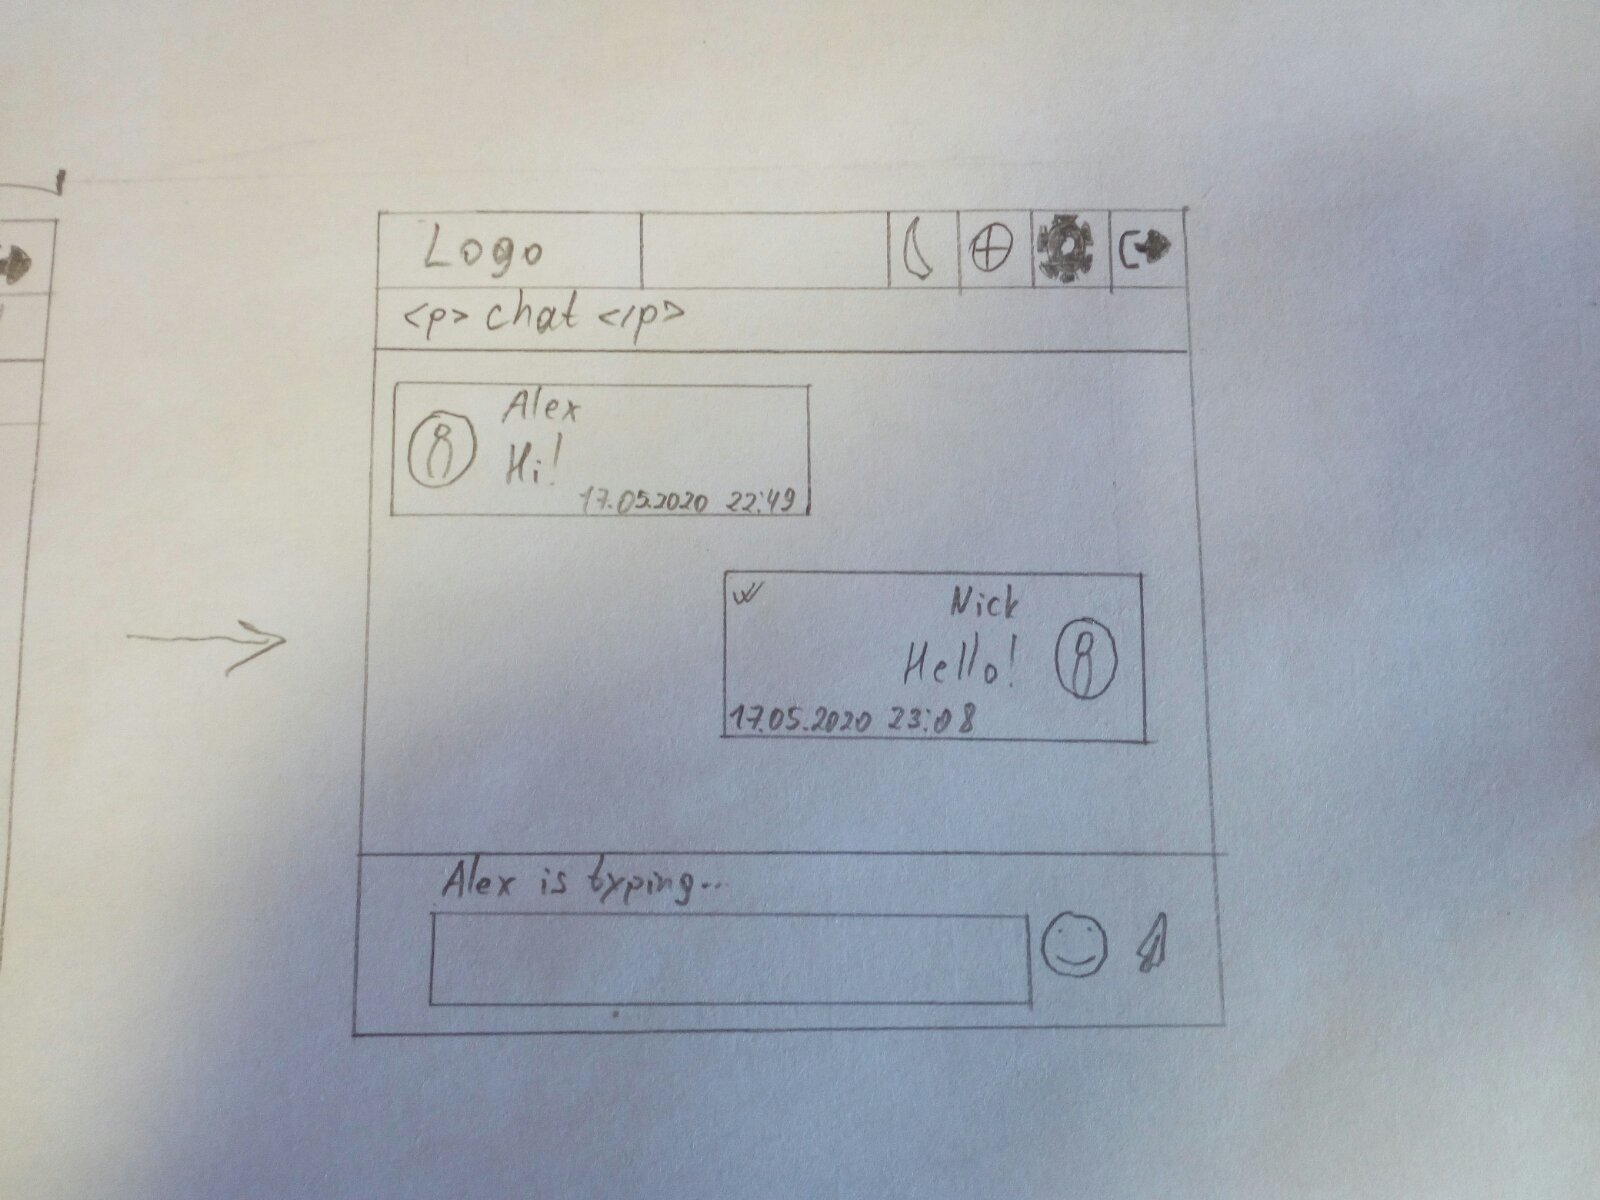 Logo
<p> chat </p>
Alex
Hi!
17.05.2020 22:49
Nick
Hello!
17.05.2020 23:08
Alex is typing...